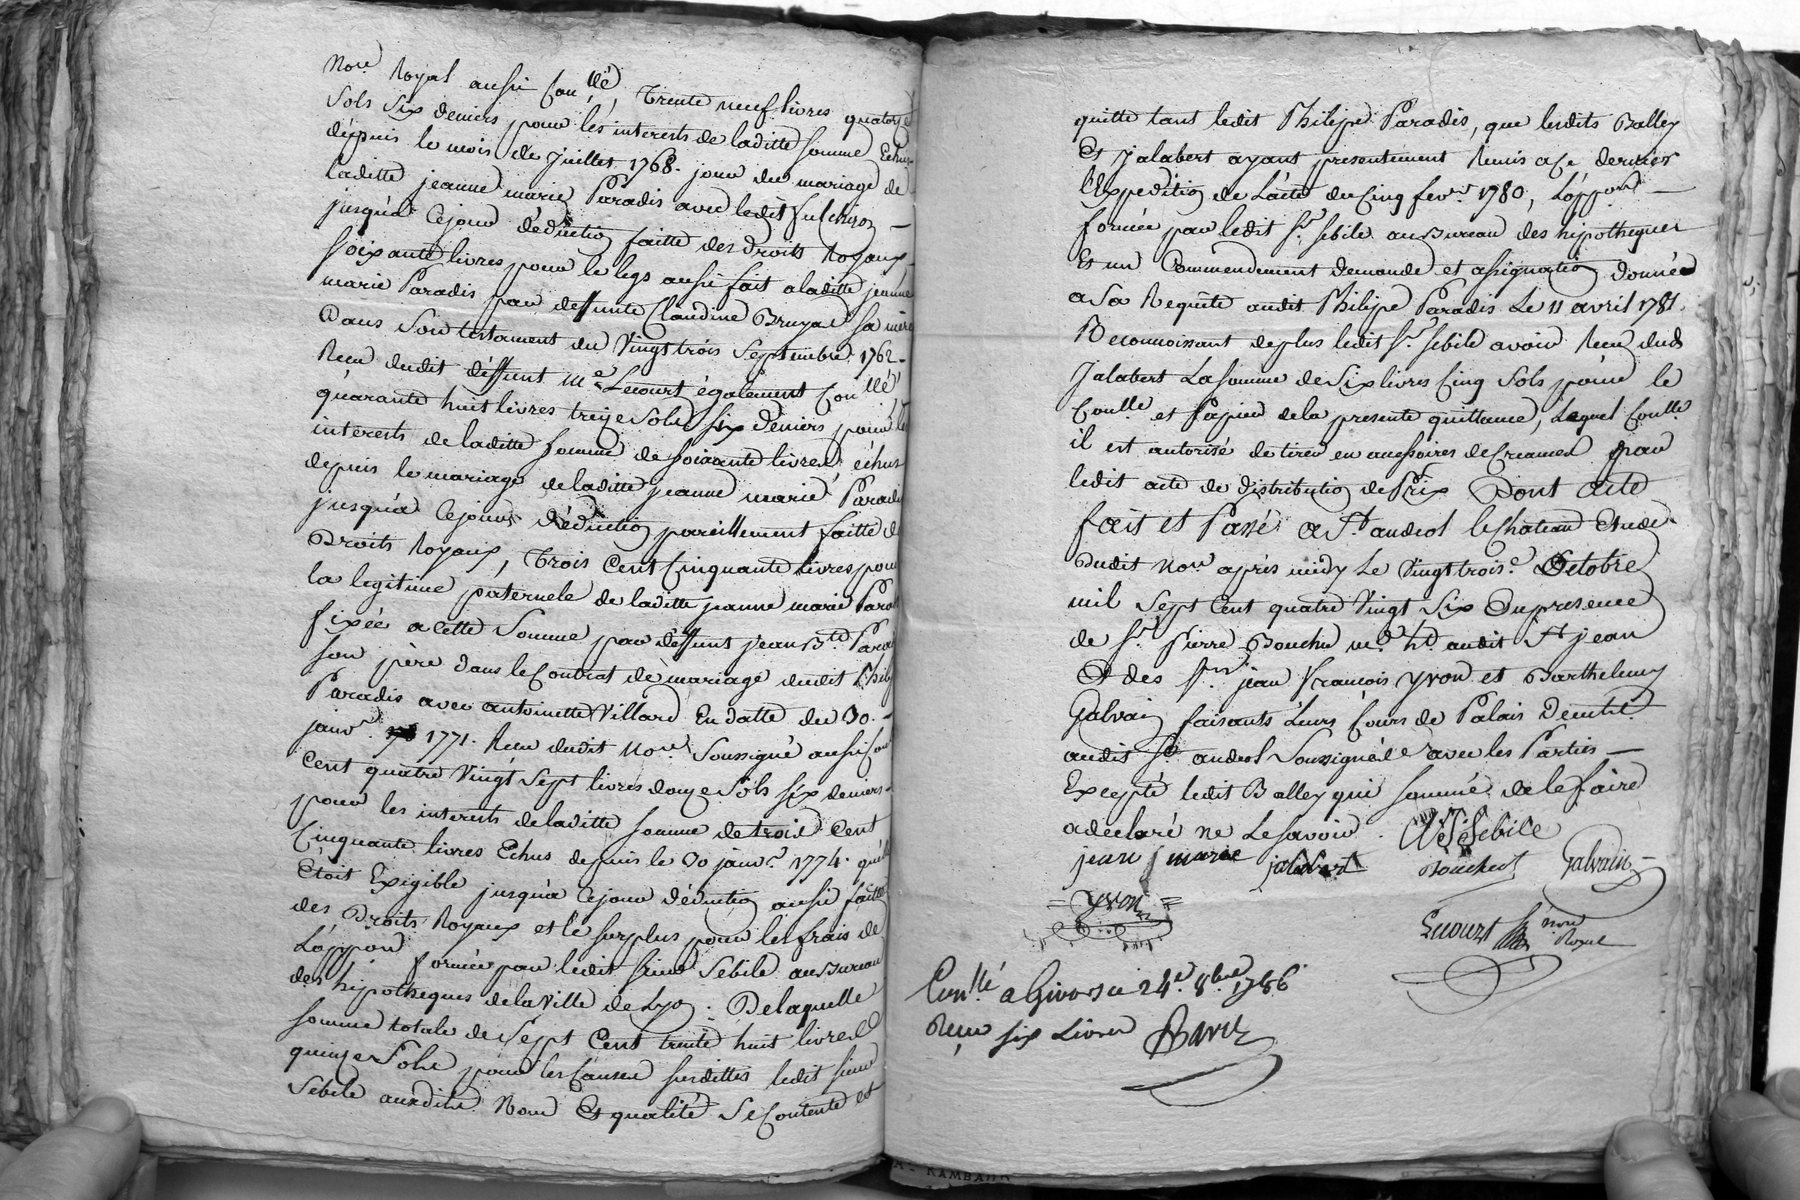 Nore Royal aussi Conllé, Trente neuf livres quatorze
Sols Six deniers pour les interests de laditte somme Echus
depuis le mois de Juillet 1768. jour du mariage de
laditte jeanne marie Paradis avec ledit fulchiron
jusqu'a Cejour déduction faitte des droits Royaux
soixante livres pour le legs aussi fait a laditte jeanne
marie Paradis par deffunte Claudine Bruyas sa mère
Dans Son testament du Vingt trois Septembre 1762.
Reçu dudit déffunt Me Lecourt également Conllé,
quarante huit livres treize Sols six deniers pour les
interests de laditte somme de soixante livres échus
depuis le mariage de laditte jeanne marie Paradis
jusqu'a Cejour déduction pareillement faitte de
Droits Royaux, Trois Cent Cinquante livres pour
la legitime paternele de laditte jeanne marie Parad
fixée a Cette Somme par deffunt jean Bte Parad
son père dans le Contrat de mariage dudit Philip
Paradis avec antoinette Villard En datte du 30.
janvr. 1771. Reçu dudit Nore Soussigné aussi Con
Cent quatre Vingt Sept livres douze Sols six deniers
pour les interests de laditte somme de trois Cent
Cinquante livres Echus depuis le 30 janvr 1774. qu'elle
Etoit Exigible jusqu'a Cejour déduction aussi faitte
des Droits Royaux et le surplus pour les frais de
L'oppon formée par ledit sieur Sebile au Bureau
des hipotheques de la Ville de Lyon : De laquelle
somme totale de Sept Cent trente huit livres
quinze Sols pour les Causes susdittes ledit sieur
Sebile auxdits Nom Et qualité Se Contente et
quitte tant ledit Philipe Paradis, que lesdits Balley
Et Jalabert ayant presentement Remis a Ce dernier
l'Expedition de L'acte du Cinq fevr 1780, L'oppon
formée par ledit Sr Sebile au Bureau des hipotheques
Et un Commendement demande et assignation donnée
a Sa Requête audit Philipe Paradis Le 11 avril 1781.
Reconnoissant de plus ledit Sr Sebile avoir Reçu dud
Jalabert La Somme de Six livres Cinq Sols pour le
Conlle et Papier de la presente quittance, Lequel Conlle
il est autorisé de tirer en accessoires de Creances par
ledit acte de distribution de Prix Dont acte
fait et Passé a St andeol le Chateau Etude
Dudit Nore après midy Le Vingt trois e Octobre
mil Sept Cent quatre Vingt Six En presence
de Sr Pierre Bouchu md hd audit St jean
Et des Srs jean François Yvon et Barthelemy
Galvain faisants Leurs Cours de Palais
audit St andeol Soussignés avec les Parties
Excepté ledit Balley qui sommé de le faire
a déclaré ne Le Savoir. Sebile
jean marie jalabert Bouchu Galvain
Yvon
Lecourt nore Royal
Conllé a Givors ce 24e 8bre 1786
Reçu six Livres